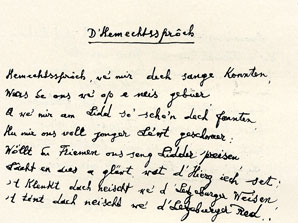 D'Hemechtssprôch
Hemechtssprôch, we' mir dech sange konnten,
Wars be ons we' op e neis gebuer
A we' mir am Lidd so' sche'n dech fonnten
Hu mir ons voll jonger Left geschwuer:
Wöllt be Friemen ons seng Lidder preisen,
Lacht en dies a glawt wat d'Hierz ich set:
't Klenkt dach neischt we' d'Letzeburger Weisen,
't tént dach neischt we' d'Letzeburger Ried..